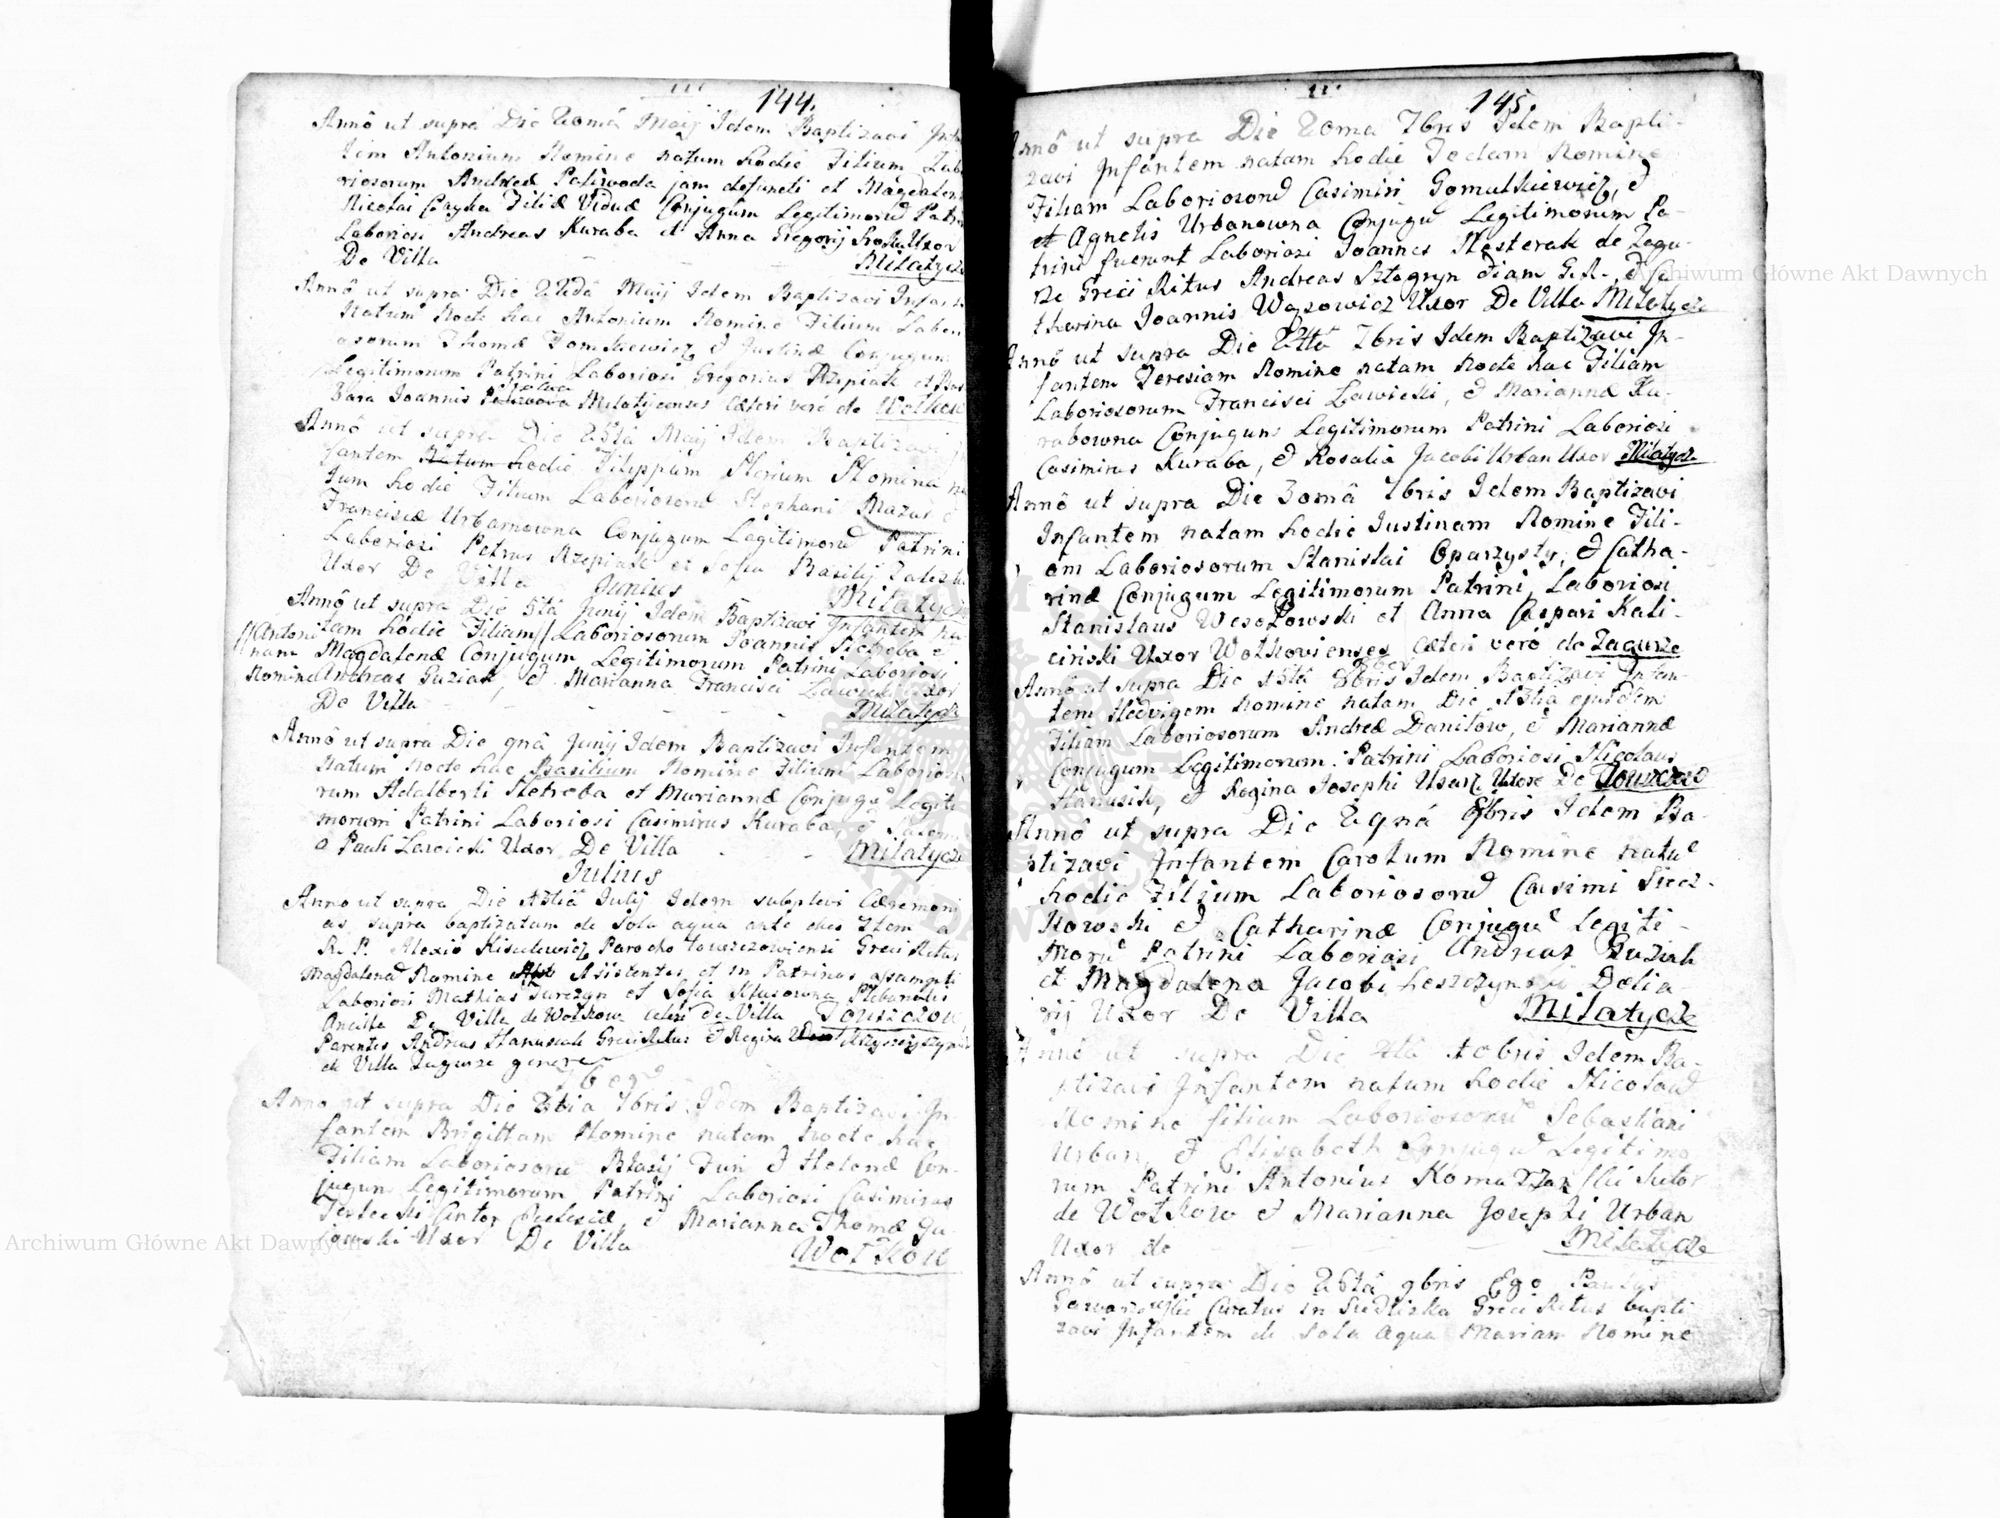 144.
Annô ut supra Die 20mâ Maij Idem Baptizavi Infan
tem Antonium Nomine natum hodie Filium Labo
riosorum Andreæ Paliwoda jam defuncti et Magdalen
Nicolai Czayka Filiæ Viduæ Conjugum Legitimorũ Patrin
Laboriosi Andreas Kuraba et Anna Gregorij Uxor
De Villa Milatycze
Annô ut supra Die Maij Idem Baptizavi Infan
Natum Nocte hac Antonium Nomine Filium Labori
osorum Thomæ Tomkiewicz & Justinæ Conjugum
Legitimorum Patrini Laboriosi Gregorius Rzepiak et Bar
bara Joannis Milatijcenses Cæteri verô de Wolkow
Annô ut supra Die 25tâ Maij Idem Baptizavi
fantem Natum hodie Filippum Nerium Nomine na
tum hodie Filium Laboriosorũ Stephani Mazur &
Franciscæ Urbanowna Conjugum Legitimorũ Patrini
Laboriosi Petrus Rzepiak et Sofia Basilij
Uxor De Villa Milatycze
Junius
Annô ut supra Die 5tâ Junij Idem Baptizavi Infantem na
tam hodie Filiam // Laboriosorum Joannis Nietreba &
// Antoni
nam
Nomine
Magdalenæ Conjugum Legitimorum Patrini Laboriosi
Andreas Guziak, & Marianna Francisci Lawicki Uxor
De Villa Milatycze
Annô ut supra Die 9nâ Junij Idem Baptizavi Infantem
Natum nocte hac Basilium Nomine Filium Laborioso
rum Adalberti Netreba et Mariannæ Conjugũ Legiti
morum Patrini Laboriosi Casimirus Kuraba, &
a Pauli Lawicki Uxor De Villa Milatycze
Julius
Anno ut supra Die 13tiâ Julij Idem suplevi Cæremoni
as supra baptizatam de Sola aqua ante dies
R. P. Alexio Kisielewicz Parocho towszczowiensi Greci Ritus
Magdalenã Nomine Assistentes et in Patrinos assumpti
Laboriosi Mathias Turczyn et Sofia Plebanalis
Ancilla De Villa de Wolkow cæteri de Villa Towszczow
Parentes Andreas Hanusiak Greci Ritus & Regina
de Villa Zagurze
7ber
Anno ut supra Die 7bris Idem Baptizavi In
fantem Brigittam Nomine natam Nocte hac
Filiam Laboriosorũ Blasij Fuń & Helenæ Con
jugum Legitimorum Patrini Laboriosi Casimirus
Cantor Ecclesiæ, & Marianna Thomæ Gu
Uxor De Villa Wolkow
145.
Annô ut supra Die 20ma 7bris Idem Bapti-
zavi Infantem natam hodie Teclam Nomine
Filiam Laboriosorũ Casimiri Gomulkiewicz, &
et Agnetis Urbanowna Conjugũ Legitimorum Pa-
trini fuerunt Laboriosi Joannes Nesterak de Zagu-
rze Greci Ritus Andreas Ca
tharina Joannis Wąsowicz Uxor De Villa Milatycze
Annô ut supra Die 7bris Idem Baptizavi In-
fantem Teresiam Nomine natam Nocte hac Filiam
Laboriosorum Francisci Lawicki, & Mariannæ Ku-
rabowna Conjugum Legitimorum Patrini Laboriosi
Casimirus Kuraba, & Rosalia Jacobi Urban Uxor Milatycze
Annô ut supra Die 30mâ 7bris Idem Baptizavi
Infantem natam hodie Justinam Nomine Fili-
am Laboriosorum Stanislai Oparzysty, & Catha-
rinæ Conjugum Legitimorum Patrini Laboriosi
Stanislaus Wesołowski et Anna Caspari Kali-
ciński Uxor Wolkowienses Cæteri verô de Zagurze
8ber
Annô ut supra Die 15tâ 8bris Idem Baptizavi Infan-
tem Hedvigem Nomine natam Die 13tiâ ejusdem
Filiam Laboriosorum Andreæ Daniłow, & Mariannæ
Conjugum Legitimorum. Patrini Laboriosi Nicolaus
Hanusik, et Regina Josephi Uxor De Towszczow
Annô ut supra Die 29nâ 8bris Idem Ba-
ptizavi Infantem Carolum Nomine natũ
hodie Filium Laboriosorũ Casimi Siecz-
kowski & Catharinæ Conjugũ Legiti-
morũ Patrini Laboriosi Andreas Guziak
et Magdalena Jacobi Leszczynski
Uxor De Villa Milatycze
Annô ut supra Die Idem Ba-
ptizavi Infantem natum hodie Nicolaũ
Nomine filium Laboriosorũ Sebastiani
Urban, & Elisabeth Conjugũ Legitimo
rum Patrini Antonius Komarzański Sutor
de Wolkow & Marianna Josephi Urban
Uxor de Milatycze
Annô ut supra Die 25tâ 9bris Ego Paulus
Curatus in Siedliska Greci Ritus bapti
zavi Infantem de Sola Aqua Mariam Nomine
Archiwum Główne Akt Dawnych
Archiwum Główne Akt Dawnych